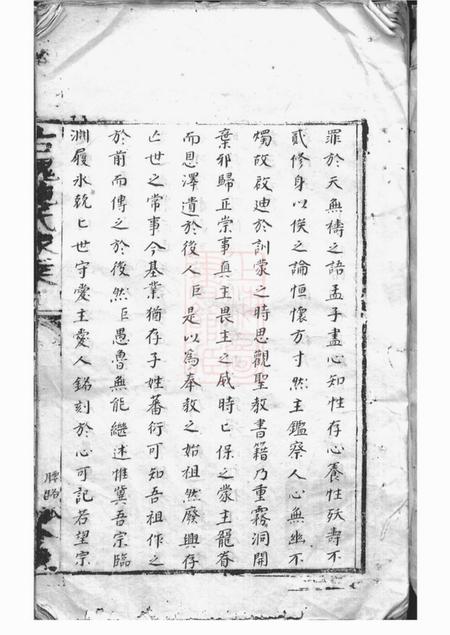 罪於天無禱之語孟子盡心知性存心養性殀壽不
貳修身以俟之論恒懷方寸然主鑑察人心無幽不
燭故啟迪於訓蒙之時思觀聖教書籍乃重霧洞開
棄邪歸正崇事真主畏主之威時匕保之蒙主寵眷
而恩澤遺於後人巨是以為奉教之始祖然廢興存
亡世之常事今基業猶存子姓蕃衍可知吾祖作之
於前而傳之於後然巨愚魯無能繼述惟冀吾宗臨
淵履氷兢匕世守愛主愛人銘刻於心可記若望宗